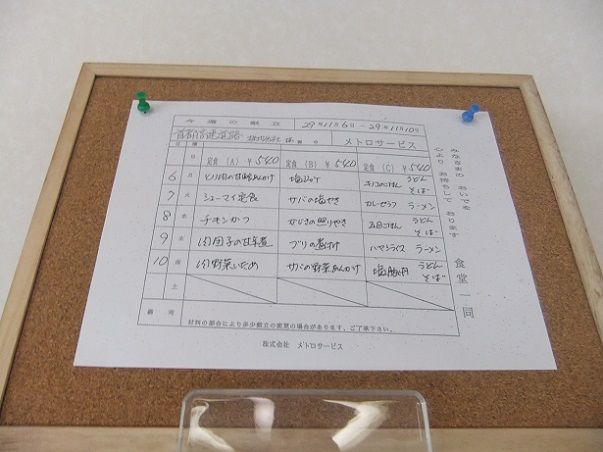 今週の献立 29年11月6日~29年11月10日
首都高速道路 メトロサービス
日 定食(A) ¥540 定食(B) ¥540 定食(C) ¥540
6 月 とり肉の甘酢あんかけ うどん そば
7 火 シューマイ定食 サバの塩やき カレーピラフ ラーメン
8 水 チキンかつ かじきの照りやき 五目ごはん うどん そば
9 木 肉団子の甘辛煮 ブリの煮付 ハヤシライス ラーメン
10 金 肉野菜いため サバの野菜あんかけ 塩豚丼 うどん そば
土
備考 材料の都合により多少献立の変更の場合があります、ご了承下さい。
株式会社 メトロサービス
みなさまの おいでを
心より お待ちして おります
食堂一同